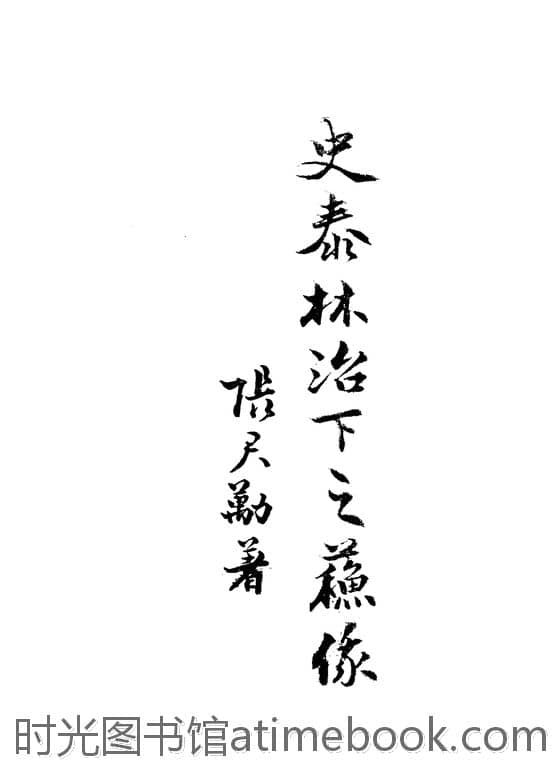 史泰林治下之蘇俄
張君勱著
时光图书馆atimebook.com